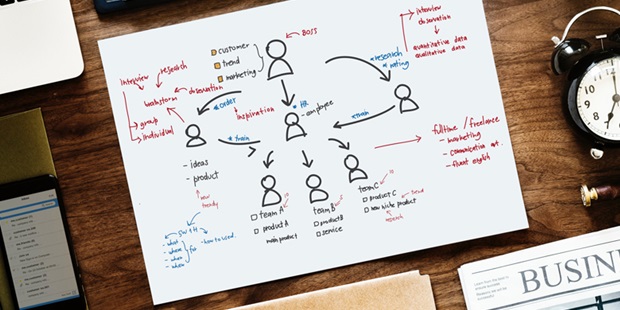 interview
observation
quantitative data
qualitative data
BOSS
customer
trend
marketing
research
rating
interview
research
brainstorm
observation
group
individual
order
inspiration
HR
employee
train
train
- ideas
- product
trendy
fulltime / freelance
- marketing
- communication
- fluent english
team A
product A
main product
team B
product B
service
team C
product C
new niche product
trend
research
5W1H
- what
- where
- who
- when
for
how to used
BUSIN